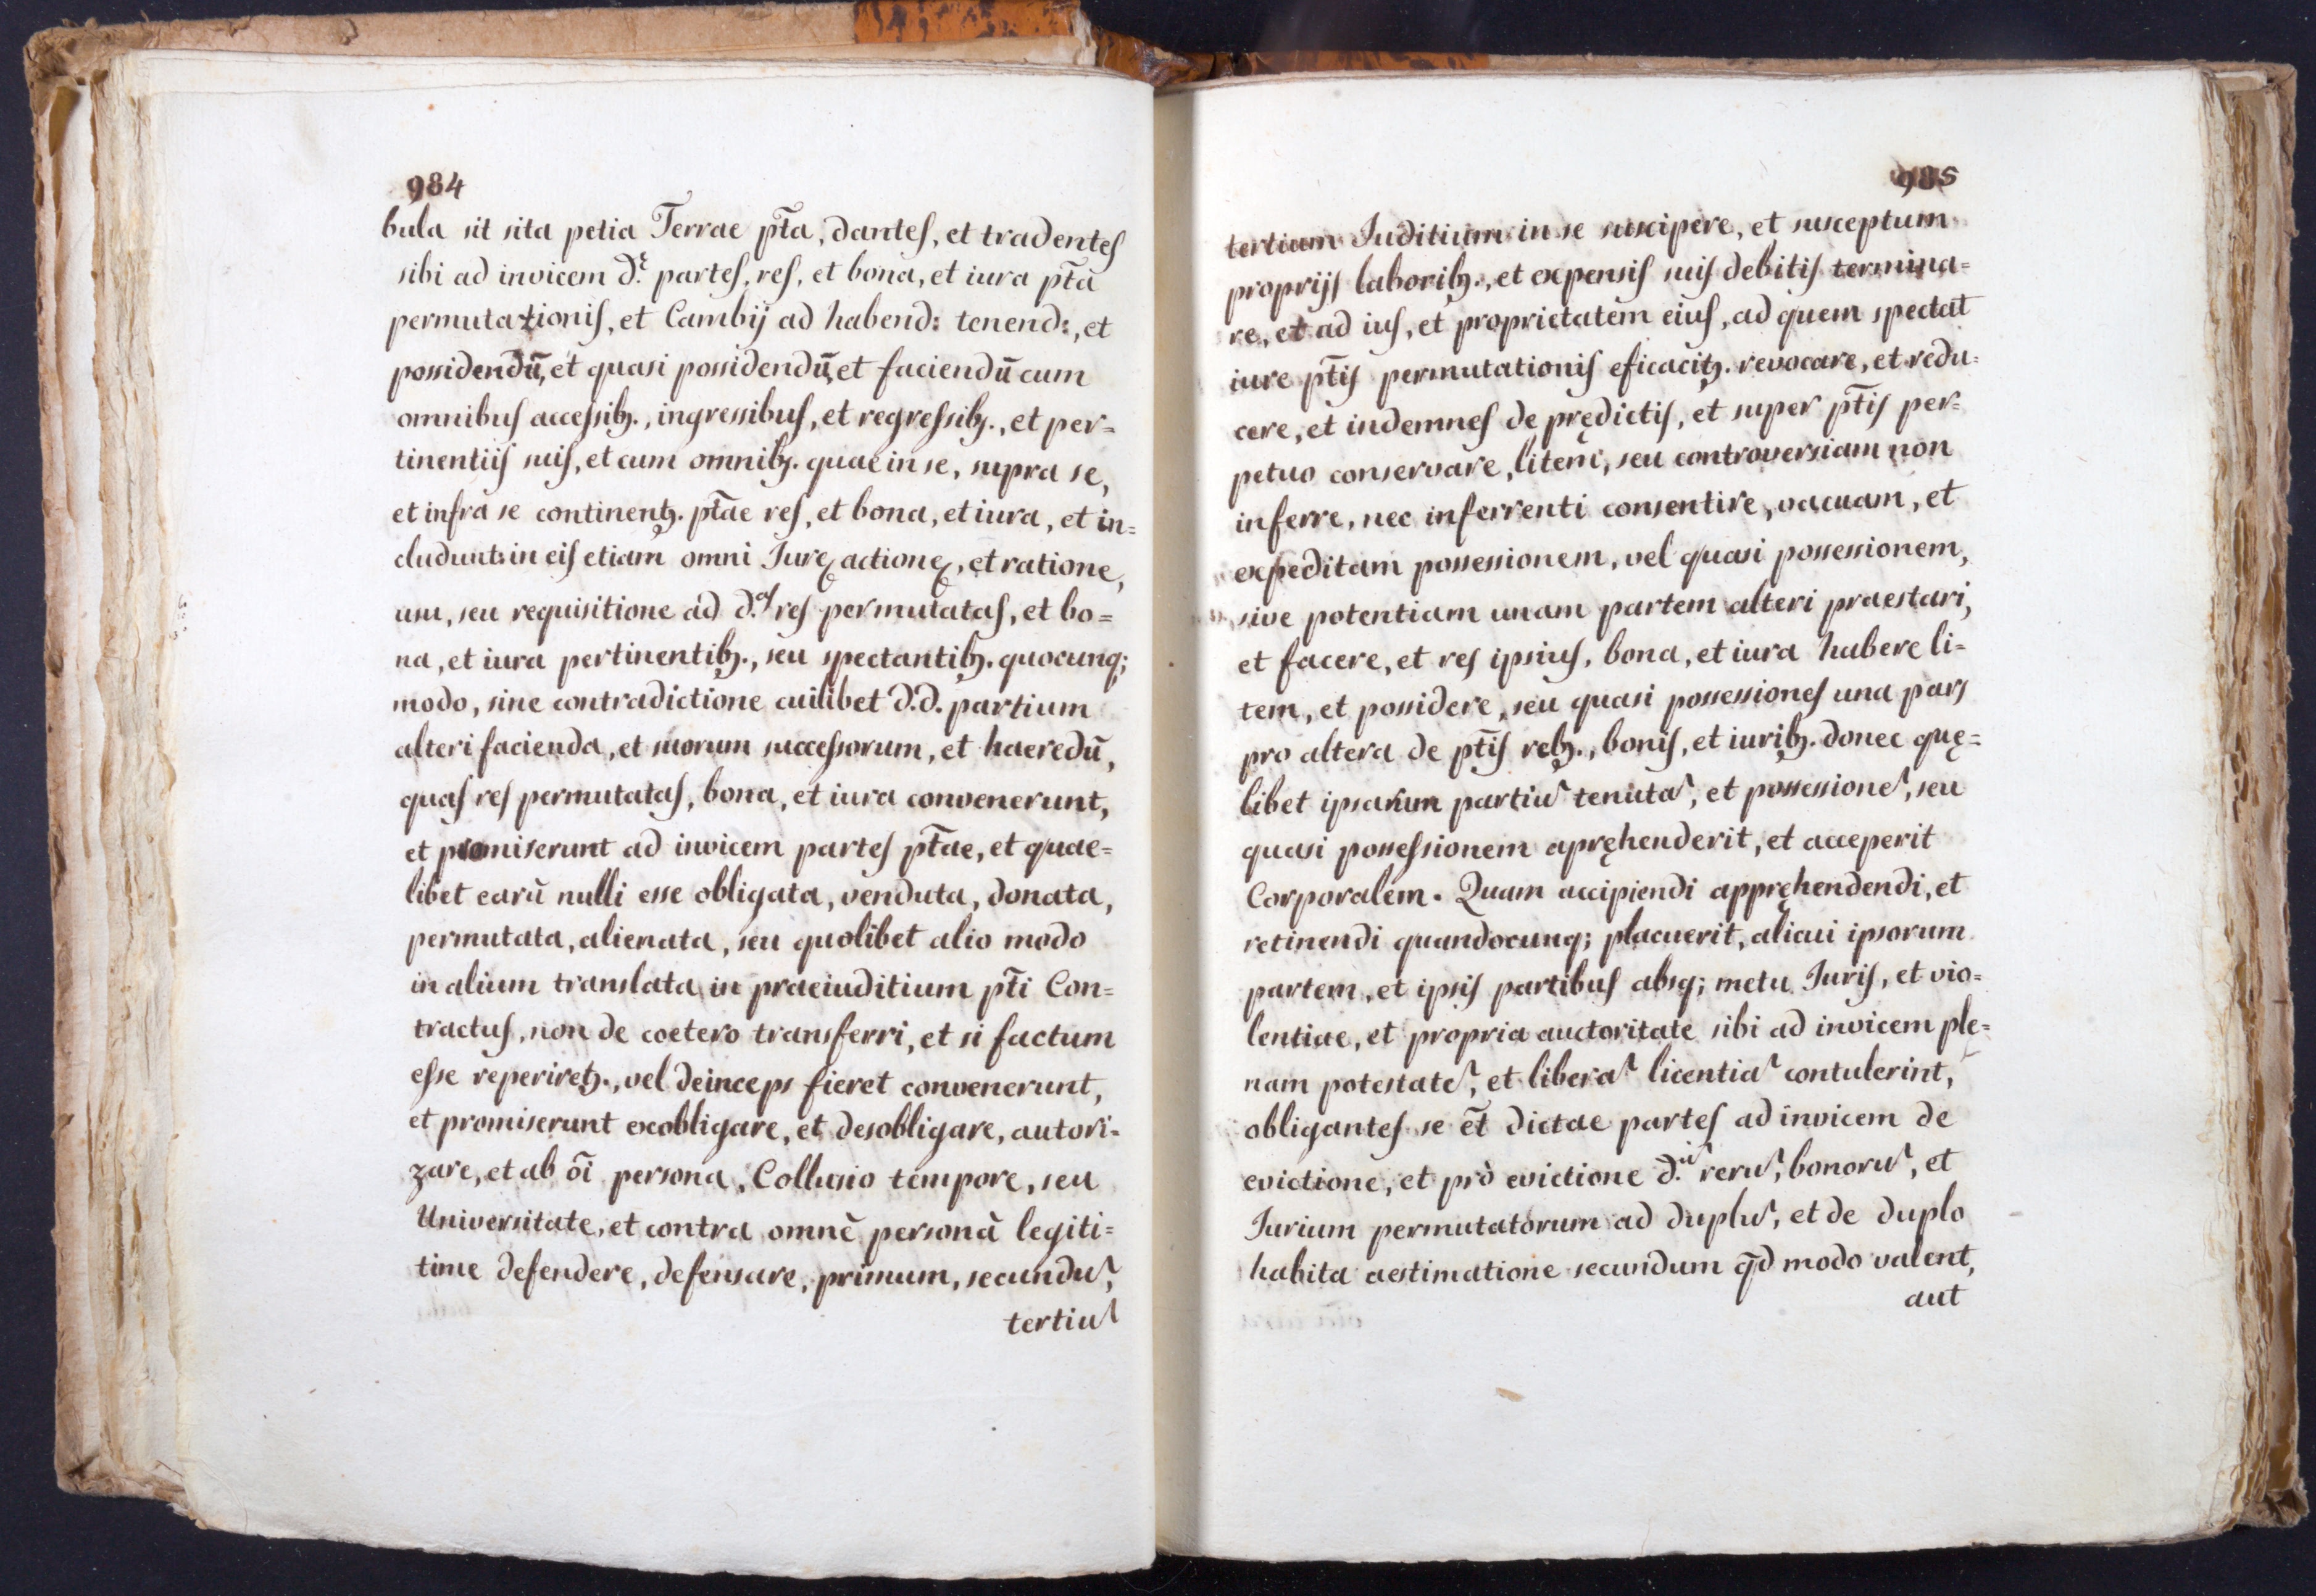 984
bula sit sita petia Terrae pt̄a, dantes, et tradentes
sibi ad invicem d.ę partes, res, et bona, et iura pt̄a
permutationis, et Cambij ad habend: tenend:, et
possidendū, et quasi possidendū, et faciendū cum
omnibus accessibꝫ., ingressibus, et regressibꝫ., et per=
tinentiis suis, et cum omnibꝫ. quae in se, supra se,
et infra se continentꝫ. pt̄ae res, et bona, et iura, et in=
cludunt: in eis etiam omni Iure, actione, et ratione,
usu, seu requisitione ad d.as res permutatas, et bo=
na, et iura pertinentibꝫ., seu spectantibꝫ. quocunq;
modo, sine contradictione cuilibet d.d. partium
alteri facienda, et suorum successorum, et haeredū,
quas res permutatas, bona, et iura convenerunt,
et promiserunt ad invicem partes pt̄ae, et quae=
libet earū nulli esse obligata, venduta, donata,
permutata, alienata, seu quolibet alio modo
in alium translata in praeiuditium pt̄i Con=
tractus, non de coetero transferri, et si factum
esse reperiretꝫ., vel deinceps fieret convenerunt,
et promiserunt exobligare, et desobligare, autori=
zare, et ab ōi persona, Collusio tempore, seu
Universitate, et contra omnē personā legiti=
time defendere, defensare, primum, secundū,
tertiū
985
tertium Iuditium in se suscipere, et susceptum
proprijs laboribꝫ., et expensis suis debitis termina=
re, et ad ius, et proprietatem eius, ad quem spectat
iure pt̄is permutationis eficacitꝫ. revocare, et redu=
cere, et indemnes de prędictis, et super pt̄is per=
petuo conservare, litem, seu controversiam non
inferre, nec inferrenti consentire, vacuam, et
expeditam possessionem, vel quasi possessionem,
sive potentiam unam partem alteri praestari,
et facere, et res ipsius, bona, et iura habere li=
tem, et possidere, seu quasi possessiones una pars
pro altera de pt̄is rebꝫ., bonis, et iuribꝫ. donec quę=
libet ipsarum partiū tenutā, et possessionē, seu
quasi possessionem apręhenderit, et acceperit
Corporalem. Quam accipiendi appręhendendi, et
retinendi quandocunq; placuerit, alicui ipsorum
partem, et ipsis partibus absq; metu Iuris, et vio=
lentiae, et propria auctoritate sibi ad invicem ple=
nam potestatē, et liberā licentiā contulerint,
obligantes se et̄ dictae partes ad invicem de
evictione, et prò evictione d.ū rerū, bonorū, et
Iurium permutatorum ad duplū, et de duplo
habita aestimatione secundum qd̄ modo valent,
aut